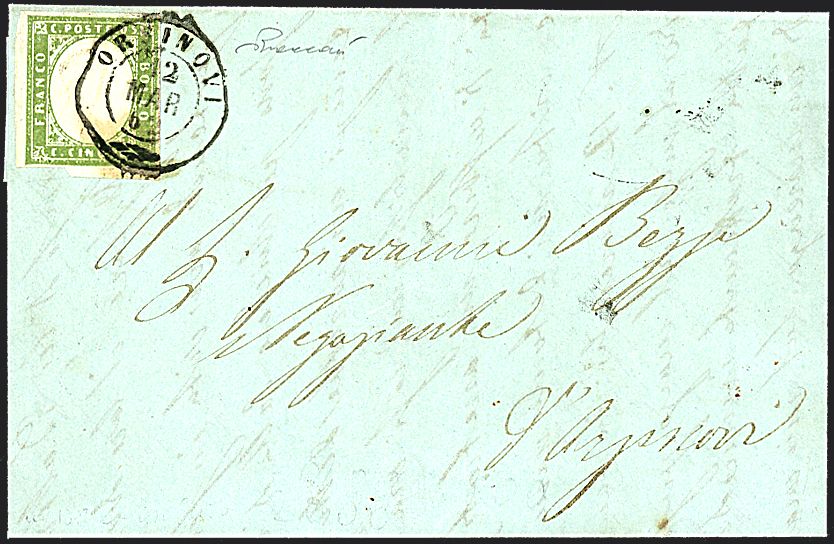 C. POSTE
FRANCO
BOLLO
C. CIN
ORZINOVI
12
MAR
Al S. Giovanni Bezzi
Negoziante
d'Orzinovi